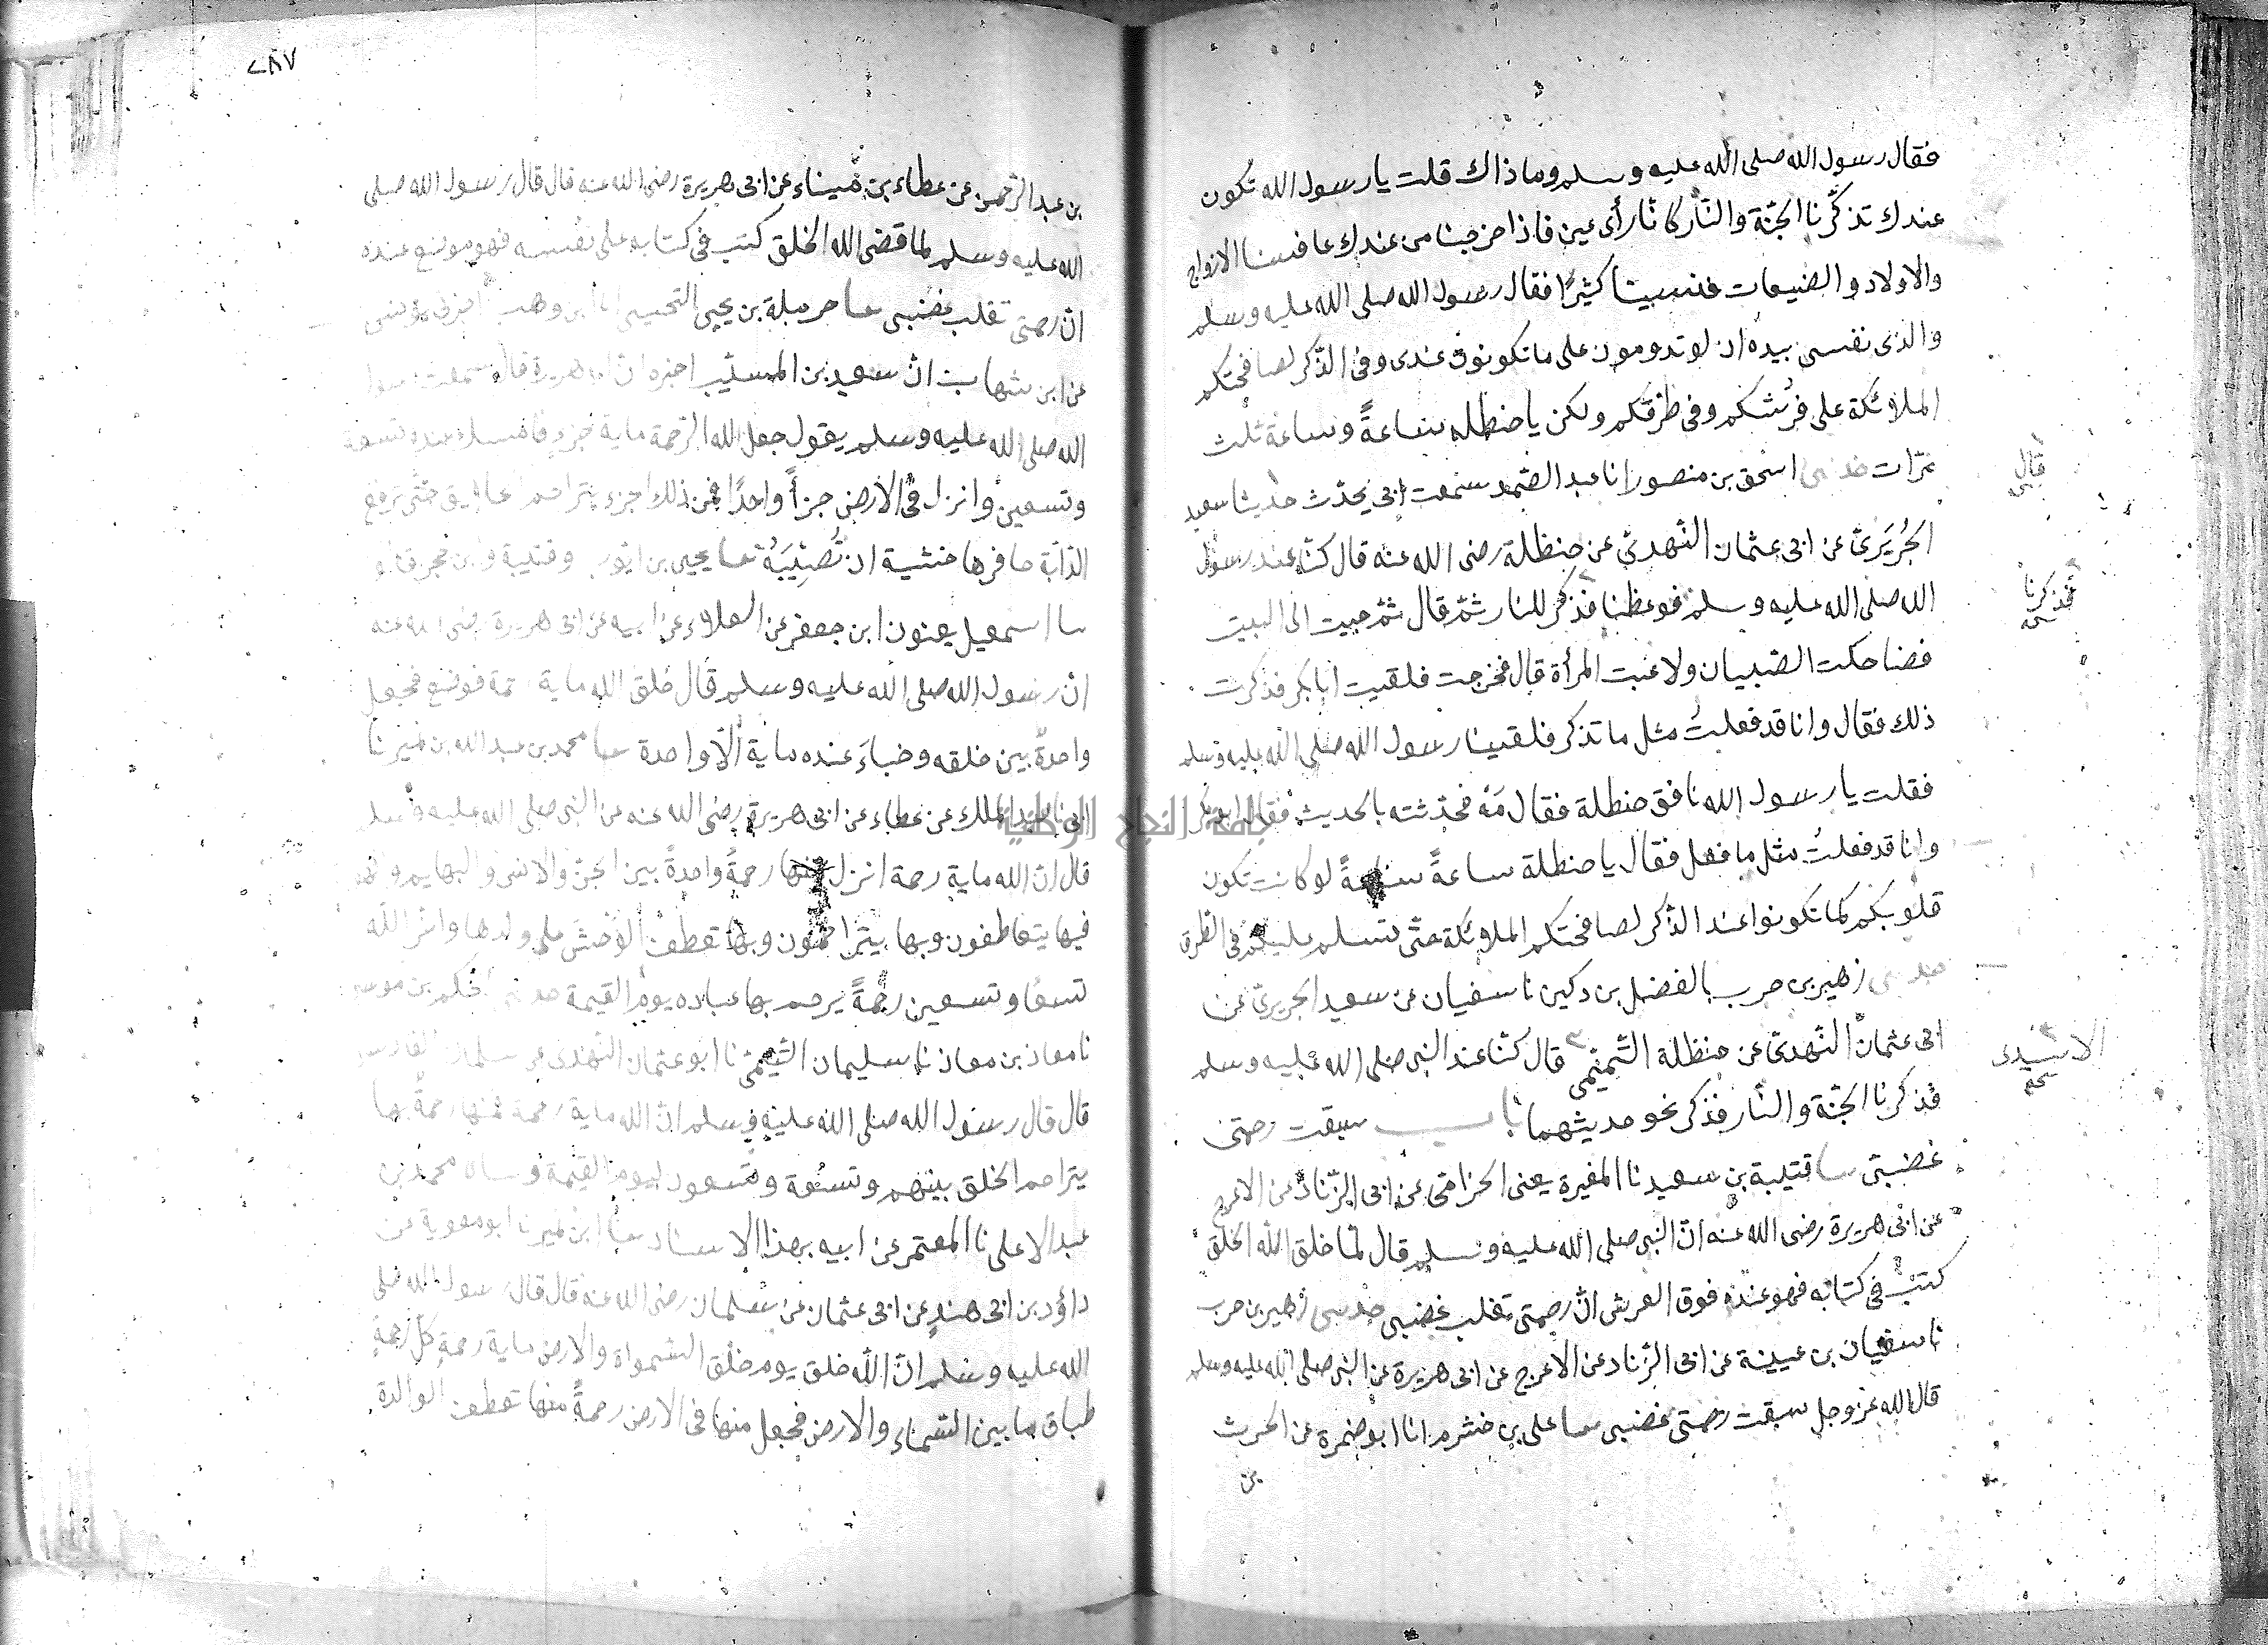 فقال رسول الله صلى الله عليه وسلم وما ذاك قلت يا رسول الله نكون
عندك تذكّرنا الجنّة والنّار كانّا رأى عين فاذا خرجنا من عندك عافسنا الازواج
والاولاد والضيعات فنسينا كثيرًا فقال رسول الله صلى الله عليه وسلم
والذى نفسى بيده ان لو تدومون على ما تكونون عندى وفى الذّكر لصافحتكم
الملائكة على فرُشكم وفى طرقكم ولكن يا حنظله ساعةً وساعة ثلث
مرّات حدثنى اسحق بن منصور انا عبد الصّمد سمعت ابى يحدّث حدثنا سعيد
الجُرَيرىّ عن ابى عثمان النّهدىّ عن حنظلة رضى الله عنه قال كنّا عند رسول
الله صلى الله عليه وسلم فوعظنا فذكر النار ثمّ قال ثمّ جيت الى البيت
فضاحكت الصّبيان ولاعبت المرأة قال فخرجت فلقيت ابا بكر فذكرت
ذلك فقال وانا قد فعلتُ مثل ما تذكر فلقينا رسول الله صلى الله عليه وسلم
فقلت يا رسول الله نافق حنظلة فقال مَهْ فحدّثته بالحديث فقال ابو بكر
وانا قد فعلتُ مثل ما فعل فقال يا حنظلة ساعةً وساعةً لو كانت تكون
قلوبكم كما تكونوا عند الذّكر لصافحتكم الملائكة حتّى تسلم عليكم فى الطّرق
حدثنى زهير بن حرب نا الفضل بن دكين نا سفيان عن سعيد الجريرىّ عن
ابى عثمان النّهدىّ عن حنظلة التّميمى قال كنّا عند النبى صلى الله عليه وسلم
فذكرنا الجنّة والنّار فذكر نحو حديثهما باب سبقت رحمتى
غضبتى حدثنا قتيبة بن سعيد نا المغيرة يعنى الحزامى عن ابى الزّناد عن الاعرج
عن ابى هريرة رضى الله عنه انّ النبى صلى الله عليه وسلم قال لمّا خلق الله الخلق
كتب فى كتابه فهو عنده فوق العرش انّ رحمتى تغلب غضبى حدثنى زهير بن حرب
نا سفيان بن عيينة عن ابى الزّناد عن الاعرج عن ابى هريرة عن النبى صلى الله عليه وسلم
قال الله عزوجل سبقت رحمتى غضبى حدثنا على بن خشرم انا ابو ضمرة عن الحرث
بن
قال
فذكرنا
الاسيدى
صح
٢٨٧
بن عبد الرّحمن عن عطاء بن ميناء عن ابى هريرة رضى الله عنه قال قال رسول الله صلى
الله عليه وسلم لما قضى الله الخلق كتب فى كتابه على نفسه فهو موضع عنده
انّ رحمتى تغلب غضبى حدثنا حرملة بن يحيى التجيبى انا ابن وهب اخبرنى يونس
عن ابن شهاب انّ سعيد بن المسيّب اخبره انّ ابا هريرة قال سمعت رسول
الله صلى الله عليه وسلم يقول جعل الله الرّحمة ماية جزء فامسك عنده تسعة
وتسعين وانزل فى الارض جزأً واحدًا فمن ذلك الجزء يتراحم الخلايق حتّى ترفع
الدّابّة حافرها خشية ان تُصِيبَهُ حدثنا يحيى بن ايّوب وقتيبة وابن حجر قالوا
نا اسمعيل يعنون ابن جعفر عن العلاء عن ابيه عن ابى هريرة رضى الله عنه
انّ رسول الله صلى الله عليه وسلم قال خلق الله ماية رحمة فوضع فجعل
واحدةً بين خلقه وخباءَ عنده ماية الّا واحدة حدثنا محمد بن عبد الله بن نمير نا
ابى نا عبد الملك عن عطاء عن ابى هريرة رضى الله عنه عن النبى صلى الله عليه وسلم
قال انّ الله ماية رحمة انزل منها رحمةً واحدةً بين الجنّ والانس والبهايم والهوام
فيها يتعاطفون وبها يتراحمون وبها تعطف الوحش على ولدها واخّر الله
تسعًا وتسعين رحمةً يرحم بها عباده يوم القيمة حدثنى الحكم بن موسى
نا معاذ بن معاذ نا سليمان التّيمىّ نا ابو عثمان النّهدى عن سلمان الفارسى
قال قال رسول الله صلى الله عليه وسلم انّ الله ماية رحمة فمنها رحمةٌ بها
يتراحم الخلق بينهم وتسعة وتسعون ليوم القيمة وحدثناه محمد بن
عبد الاعلى نا المعتمر عن ابيه بهذا الاسناد حدثنا ابن نمير نا ابو معوية عن
داؤد بن ابى هند عن ابى عثمان عن سلمان رضى الله عنه قال قال رسول الله صلى
الله عليه وسلم انّ الله خلق يوم خلق السّموات والارض ماية رحمةٍ كلّ رحمةٍ
طباق ما بين السّماء والارض فجعل منها فى الارض رحمةً منها تعطف الوالدة
جامعة النجاح الوطنية